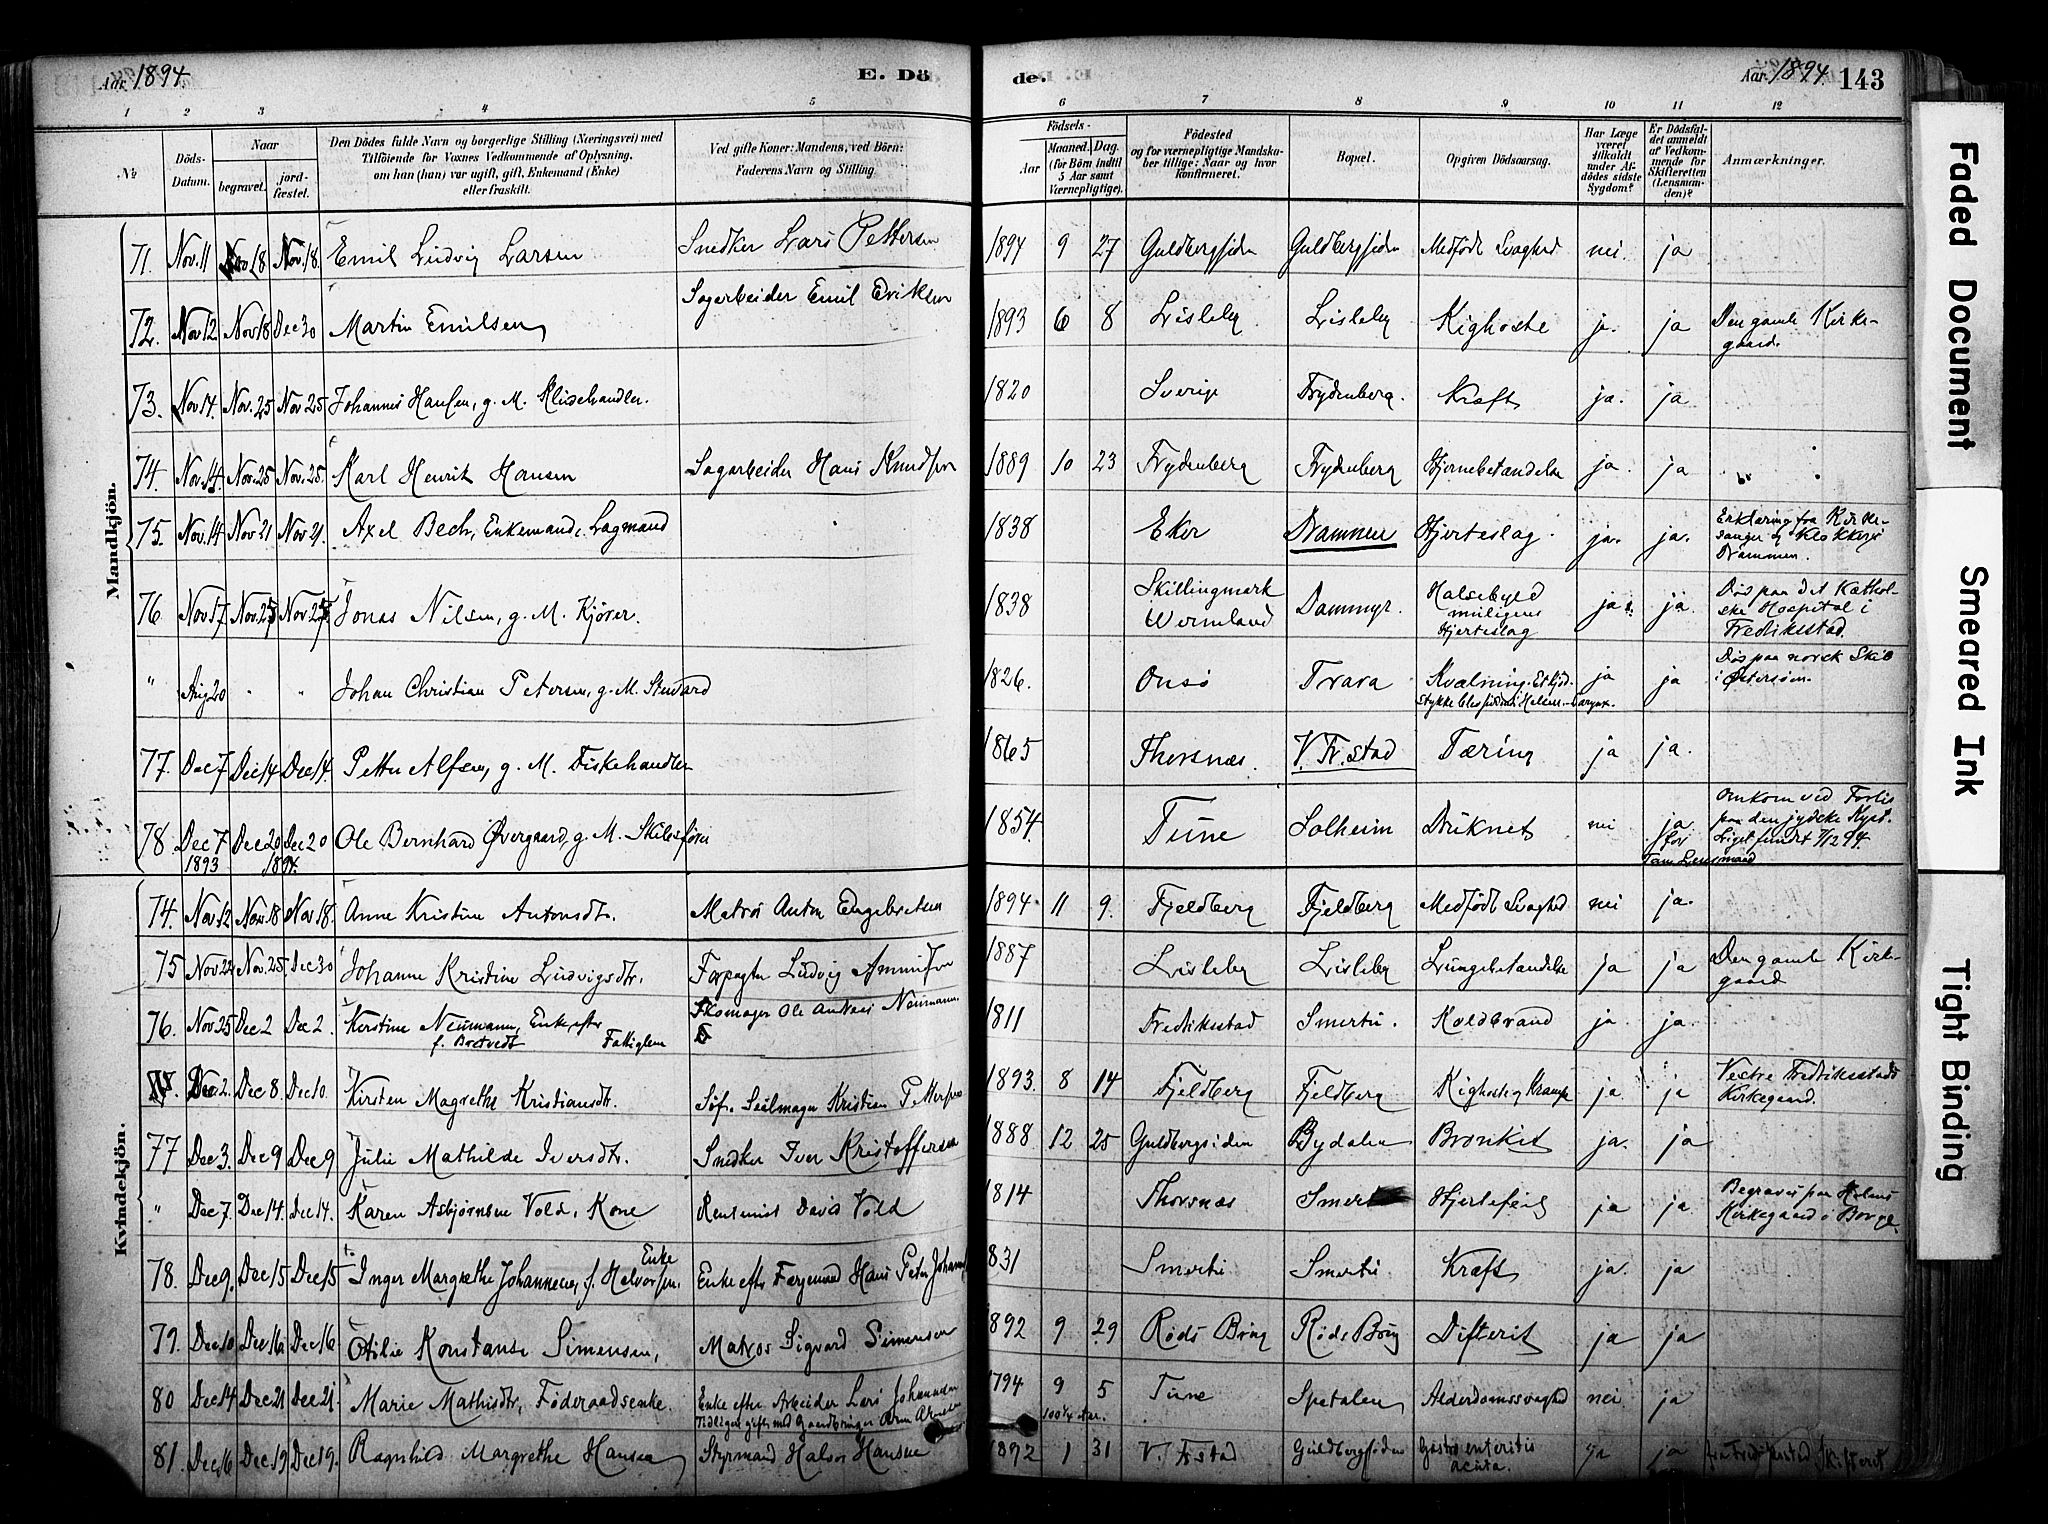 Aar 1894. E. Dö
de. Aar. 1894. 143
1 2 3 4 5 6 7 8 9 10 11 12
No
Döds-Datum.
Naar
begravet.
jordfæstet.
Den Dödes fulde Navn og borgerlige Stilling (Næringsvei) med
Tilföiende for Voxnes Vedkommende af Oplysning,
om han (hun) var ugift, gift, Enkemand (Enke)
eller fraskilt.
Ved gifte Koner: Mandens, ved Börn:
Faderens Navn og Stilling.
Födsels-
Aar
Maaned. Dag.
(for Börn indtil
5 Aar samt
Værnepligtige).
Födested
og for værnepligtige Mandskaber tillige: Naar og hvor
konfirmeret.
Bopæl.
Opgiven Dödsaarsag.
Har Læge
været
tilkaldt
under Afdödes sidste
Sygdom?
Er Dödsfaldet anmeldt
af Vedkommende for
Skifteretten
(Lensmanden)?
Anmærkninger.
Mandkjön.
71. Nov. 11 Nov 18 Nov. 18. Emil Ludvig Larsen Snedker Lars Pettersen 1894 9 27 Guldbergsiden Guldbergsiden Medfödt Svaghed nei. ja
72. Nov 12. Nov 18 Dec 30 Martin Emilsen Sagarbeider Emil Eriksen 1893 6 8 Lisleby Lisleby Kighoste ja. ja Den gamle Kirkegaard.
73. Nov 14. Nov. 25 Nov 25 Johannes Hansen, g. M. Kludehandler. 1820 Sverige Frydenberg. Kræft ja. ja
74. Nov. 14. Nov. 25 Nov. 25. Karl Henrik Hansen Sagarbeider Hans Knudsen 1889 10 23 Frydenberg Frydenberg Hjernebetændelse ja. ja
75. Nov. 14 Nov 21 Nov 21. Axel Bech, Enkemand. Lagmand 1838 Eker Drammen Hjerteslag. ja. ja. Erklæring fra Kirkesanger og Klokker i Drammen.
76 Nov 17 Nov 25 Nov 25 Jonas Nilsen, g. M. Kjører. 1838 Skillingmark Wermland Dammyr. Halsebyld muligens Hjerteslag ja. ja Døs paa det Katholske Hospital i Fredriksstad.
" Aug 20 " " Johan Christian Petersen, g. M. Stuvard 1826. Onsö Trara Kvælning. Et Kjødstykke blev siddende i Halsen - Larynx. ja ja Døs paa norsk Skib i Østersøen.
77. Dec 7 Dec 14 Dec 14. Petter Alfsen, g. M. Fiskehandler 1865 Thorsnæs. V. Fr. stad Tæring ja ja.
78 Dec 7 1893 Dec 20 Dec 20 1894. Ole Bernhard Øvergaard, g. M. Skibsfører 1854. Tune Solheim Druknet nei ja for Tune Lensmand Omkom ved Forlis paa den jydske Kyst. Liget fundet 7/12 94.
Kvindekjön.
74. Nov 12 Nov. 18 Nov 18. Anne Kristine Antonsdtr. Matros Anton Engebretsen 1894. 11 9. Fjeldberg Fjeldberg Medfödt Svaghed nei ja.
75 Nov 22 Nov. 25 Dec 30 Johanne Kristine Ludvigsdtr. Forpagter Ludvig Ammundsen 1887 Lisleby Lisleby Lungebetændelse ja ja Den gamle Kirkegaard
76. Nov 25 Dec 2 Dec 2. Kerstine Neumann, Enke efter f. Bretvedt Fattiglem Skomager Ole Andreas Neumann. 1811 Fredriksstad Smertu. Koldbrand ja. ja.
Dec 2. Dec 8. Dec 10. Kirsten Magrethe Kristiansdtr. Søf. Seilmager Kristian Pettersen 1893. 8 14 Fjeldberg Fjeldberg Kighoste, Krampe ja. ja Vestre Fredriksstads Kirkegaard.
77 Dec 3. Dec 9 Dec 9 Julie Mathilde Iversdtr. Snedker Iver Kristoffersen 1888 12 25 Guldbergsiden Bydalen Bronkit ja. ja
" Dec 7. Dec 14. Dec 14. Karen Asbjørnsen Vold, Kone Rentenist David Vold 1814 Thorsnæs Smertu Hjertefeil ja ja. Begraves paa Holens Kirkegaard i Borge.
78. Dec 9. Dec 15 Dec 15 Inger Margrethe Johannesen, f. Halvorsen. Enke Enke efter Færgemand Hans Peter Johann 831 Smertu Smertu Kræft ja. ja
79. Dec 10 Dec 16 Dec 16 Otilie Konstanse Simensen, Matros Sigvard Simensen 892 9 29 Röds Brug Röds Brug Difterit ja ja
80 Dec 14 Dec 21 Dec 21. Marie Mathisdtr, Föderaadsenke. Enke efter Arbeider Lars Johannesen Tidligere gift med Gaardbruger Arne Arnesen 1794 9 5 100 1/4 Aar. Tune Spetalen Alderdomssvaghed nei ja
81. Dec 16 Dec 19 Dec 19. Ragnhild Margrethe Hansen Styrmand Halvor Hansen 1892 1 31 V. Frstad Guldbergsiden Gastroenteritis acuta. ja ja fra Fredriksstad Skifteret
Faded Document
Smeared Ink
Tight Binding